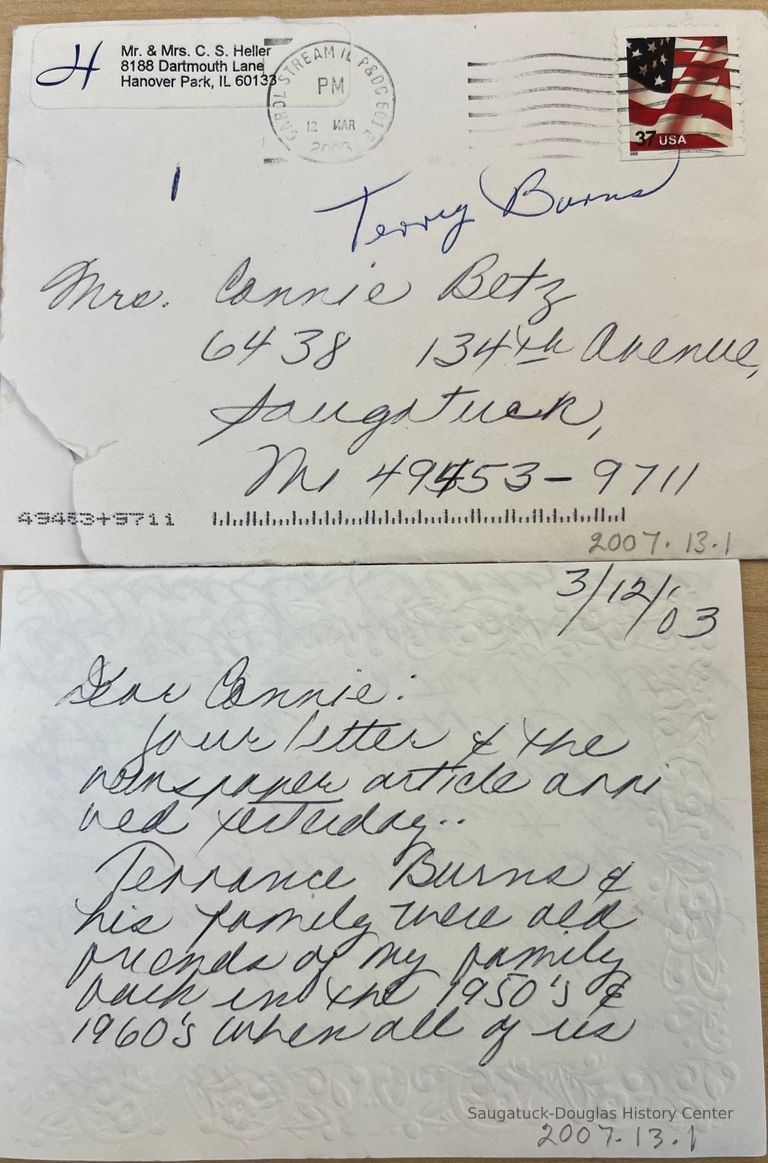 H
Mr. & Mrs. C. S. Heller
8188 Dartmouth Lane
Hanover Park, IL 60133
CAROL STREAM IL P&DC 6012
PM
12 MAR
2003
37 USA
1
Terry Burns
Mrs. Connie Betz
6438 134th Avenue,
Saugatuck,
MI 49453-9711
49453+9711
2007.13.1
3/12/'03
Dear Connie:
Your letter & the
newspaper article arri
ved yesterday..
Terrance Burns &
his family were old
friends of my family
back in the 1950's &
1960's when all of us
Saugatuck-Douglas History Center
2007.13.1